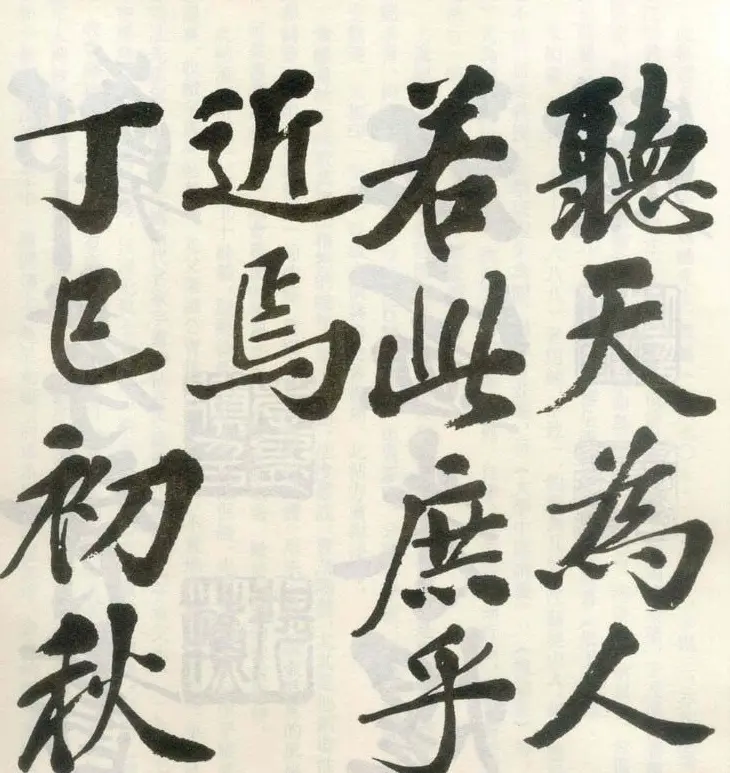 聽天為人
若此庶乎
近焉
丁巳初秋